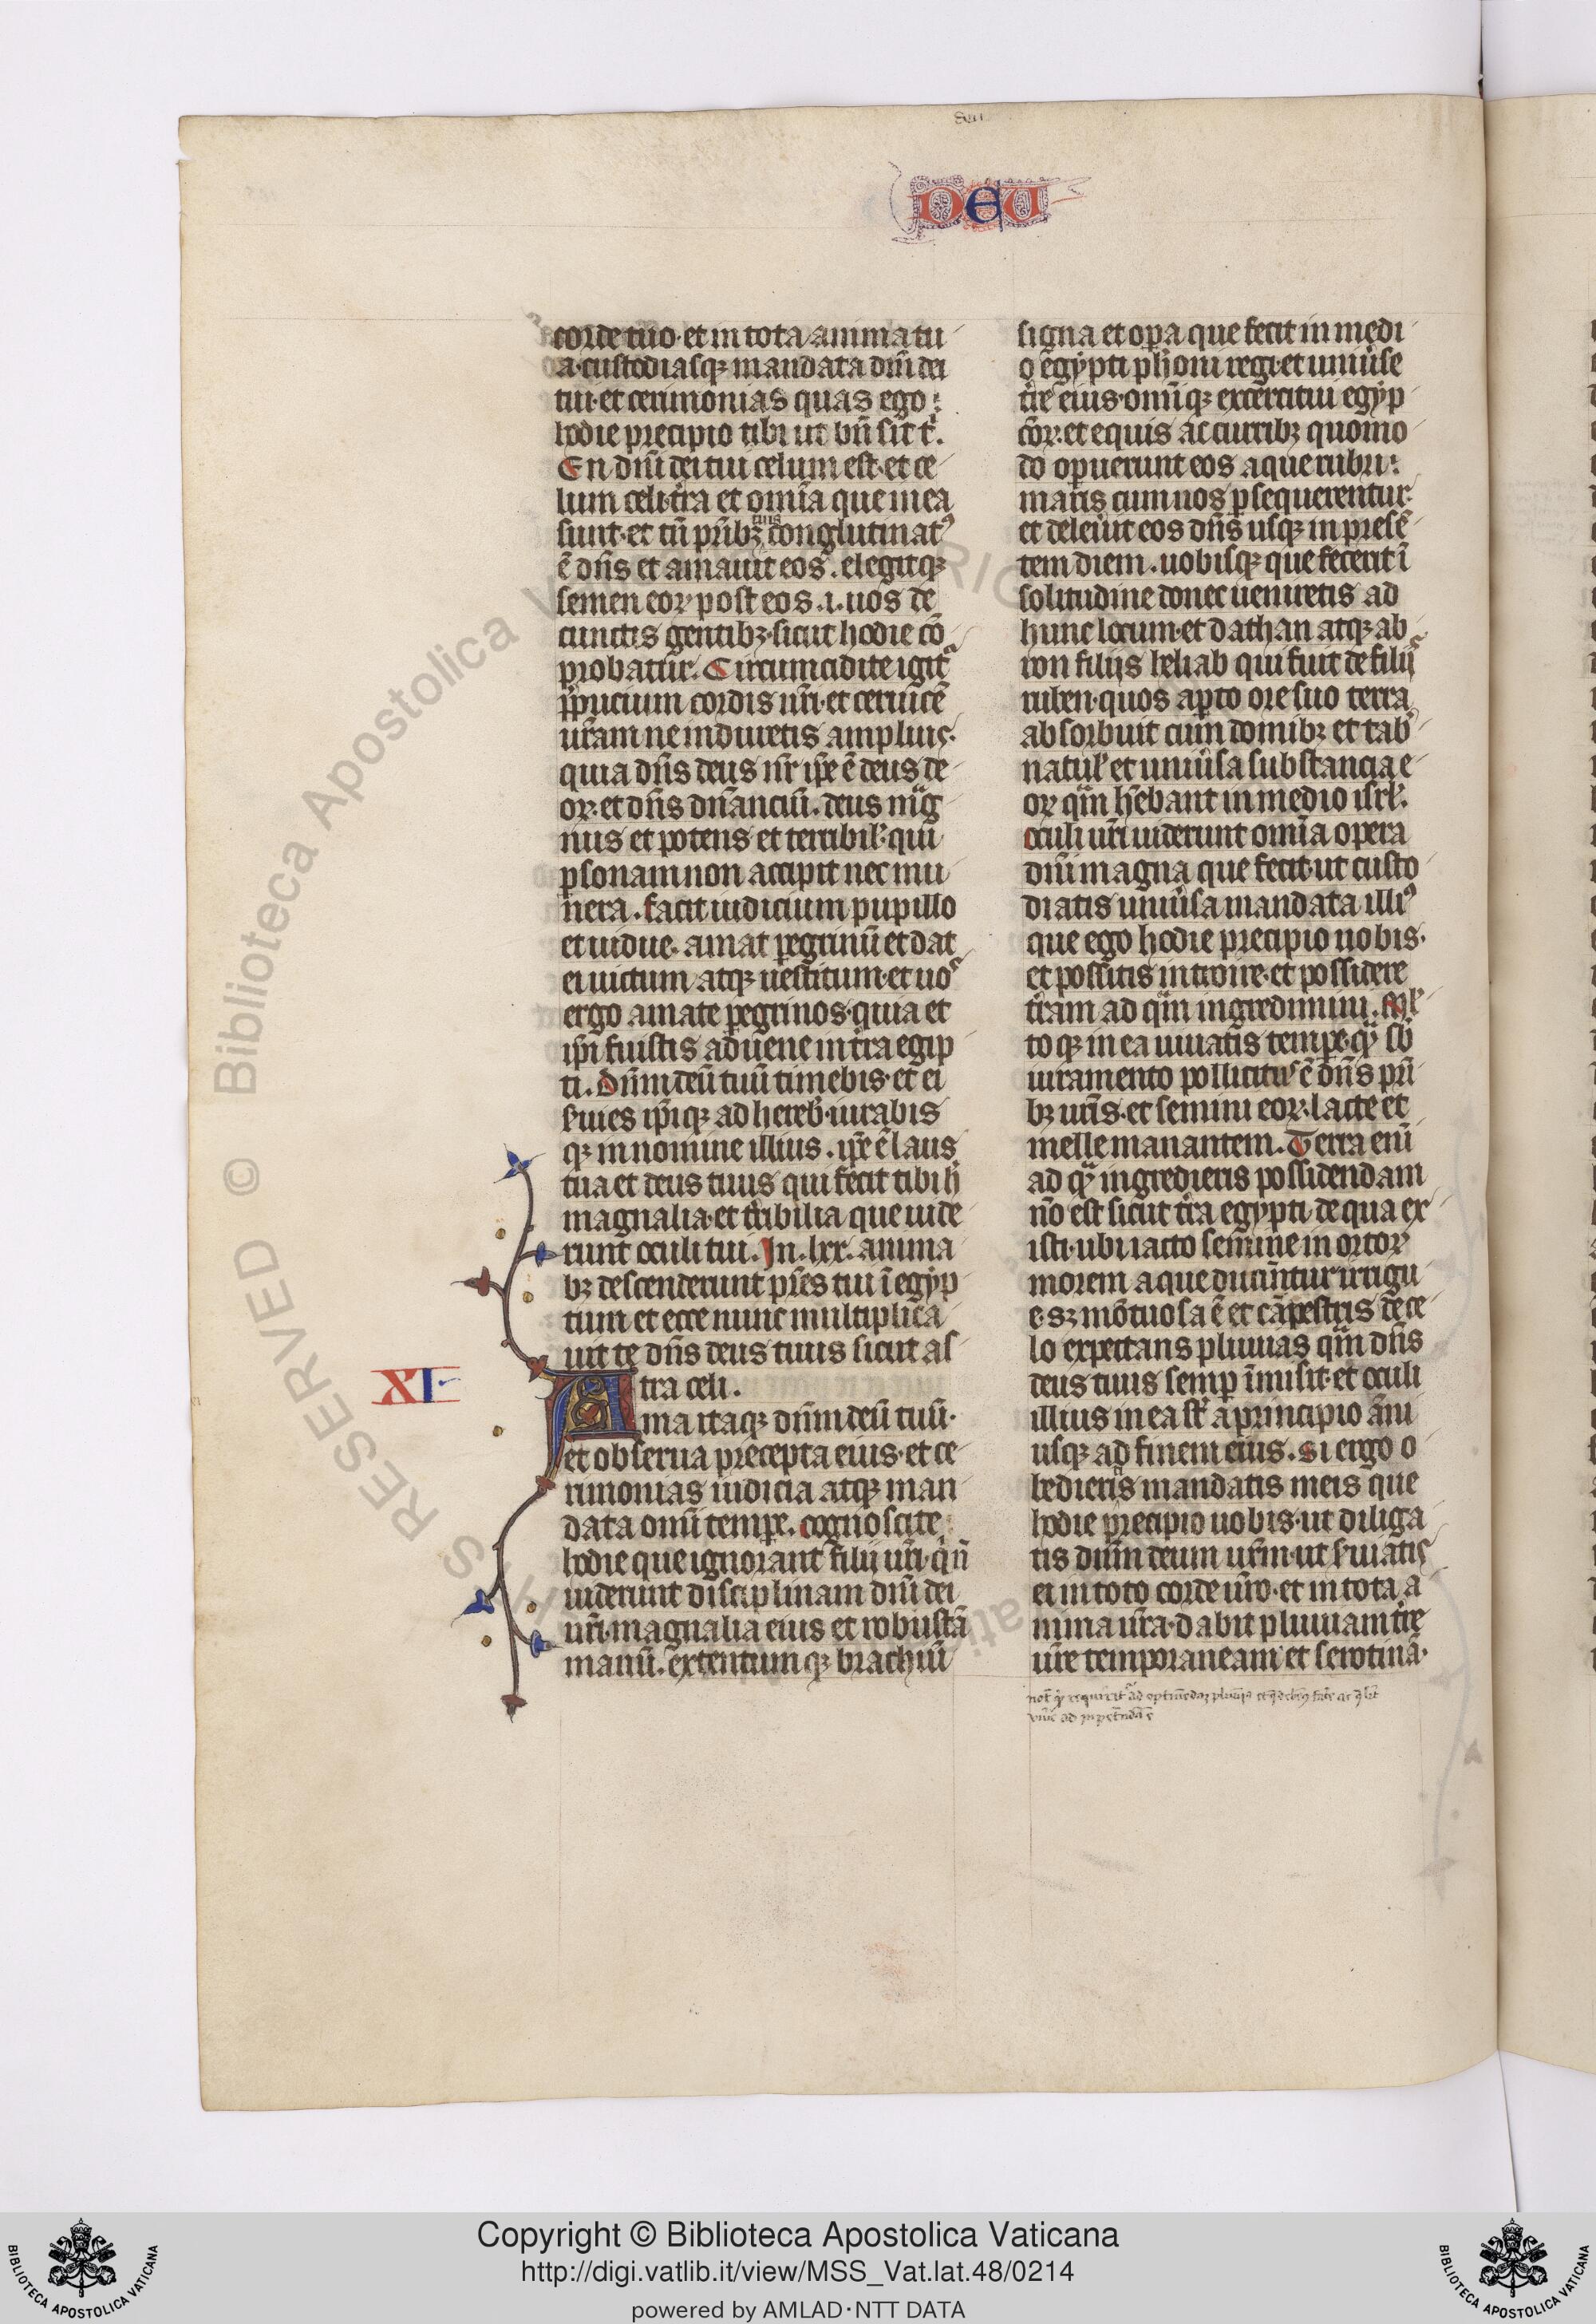 DEU
corde tuo· et in tota anima tu
a· custodiasqꝫ mandata dn̄i dei
tui· et cerimonias quas ego
hodie precipio tibi ut bn̄ sit t̄.
En dn̄i dei tui celum est· et ce
lum celi· tr̄a et om̄ia que in ea
sunt· et tn̄ prībꝫ tuis conglutinatꝰ
ē dn̄s et amauit eos. elegitqꝫ
semen eoꝝ post eos .i. uos de
cunctis gentibꝫ· sicut hodie cō
probatur. Circumcidite igit᷑
p̄pucium cordis ur̄i· et ceruicē
ur̄am ne induretis amplius·
quia dn̄s deus ur̄ ip̄e ē deus de
oꝝ· et dn̄s dn̄anciū. deus mag
nus et potens et terribil̕· qui
ꝑsonam non accipit nec mu
nera. facit iudicium pupillo
et uidue· amat ꝑegrinū et dat
ei uictum atqꝫ uestitum· et uos
ergo amate ꝑegrinos· quia et
ip̄i fuistis aduene in tr̄a egip
ti. Dn̄m deū tuū timebis· et ei
ẜuies ip̄iqꝫ adhereb̕· iurabis
qꝫ in nomine illius. ip̄e ē laus
tua et deus tuus qui fecit tibi h̄
magnalia· et tr̄ibilia que uide
runt oculi tui. In .lxx. anima
bꝫ descenderunt pr̄es tui ī egyp
tum et ecce nunc multiplica
uit te dn̄s deus tuus sicut as
tra celi.
XI
Ama itaqꝫ dn̄m deū tuū·
et obserua precepta eius· et ce
rimonias iudicia atqꝫ man
data omī temꝑe. cognoscite
hodie que ignorant filii ur̄i· qi n̄
uiderunt disciplinam dn̄i dei
ur̄i· magnalia eius et robustā
manū. extentumqꝫ brachiū
signa et oꝑa que fecit in medi
o egypti ph̄oni regi· et uniu̕se
tr̄e eius· omīqꝫ exercitui egyp
cioꝝ· et equis ac curribꝫ quomo
do oꝑuerunt eos aque rubri
maris cum uos ꝑsequerentur·
et deleuit eos dn̄s usqꝫ in presē
tem diem. uobisqꝫ que fecerit ī
solitudine donec ueniretis ad
hunc locum· et dathan atqꝫ ab
iron filijs heliab qui fuit de filijs
ruben· quos aꝑto ore suo terra
absorbuit cum domibꝫ et tab̕
natul̕ et uniu̕sa substancia e
oꝝ qm̄ hēbant in medio isrl̕.
oculi ur̄i uiderunt om̄ia opera
dn̄i magna que fecit· ut custo
diatis uniu̕sa mandata illiꝰ
que ego hodie precipio uobis·
et possitis introire· et possidere
tr̄am ad qm̄ ingredimini. Ml̕
toqꝫ in ea uiuatis temꝑe· qm̄ sb̄
iuramento pollicitus ē dn̄s prī
bꝫ ur̄is· et semini eoꝝ· lacte et
melle manantem. Terra enī
ad qm̄ ingredieris possidendam
nō est sicut tr̄a egypti de qua ex
isti· ubi iacto semine in ortoꝝ
morem aque ducūtur irrigu
e· sꝫ mōtuosa ē et cāpestris de ce
lo expectans pluuias qm̄ dn̄s
deus tuus semꝑ inuisit· et oculi
illius in ea st̄ a principio āni
usqꝫ ad finem eius. Si ergo o
bedieris mandatis meis que
hodie precipio uobis· ut diliga
tis dn̄m deum ur̄m· ut ẜuiatis
ei in toto corde ur̄o· et in tota a
nima ur̄a· dabit pluuiam tr̄e
ur̄e temporaneam et serotinā·
RESERVED © Biblioteca Apostolica
Copyright © Biblioteca Apostolica Vaticana
http://digi.vatlib.it/view/MSS_Vat.lat.48/0214
powered by AMLAD·NTT DATA
BIBLIOTECA APOSTOLICA VATICANA
BIBLIOTECA APOSTOLICA VATICANA